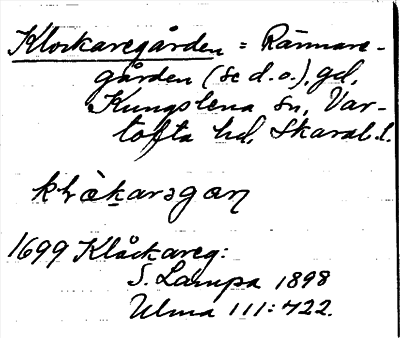 Klockaregården = Rännare-
gården (se d.o.), gd,
Kungslena sn, Var-
tofta hd, Skarab. l.
klòkarsgan
1699 Klåckareg:
S. Lampa 1898
Ulma 111:422.